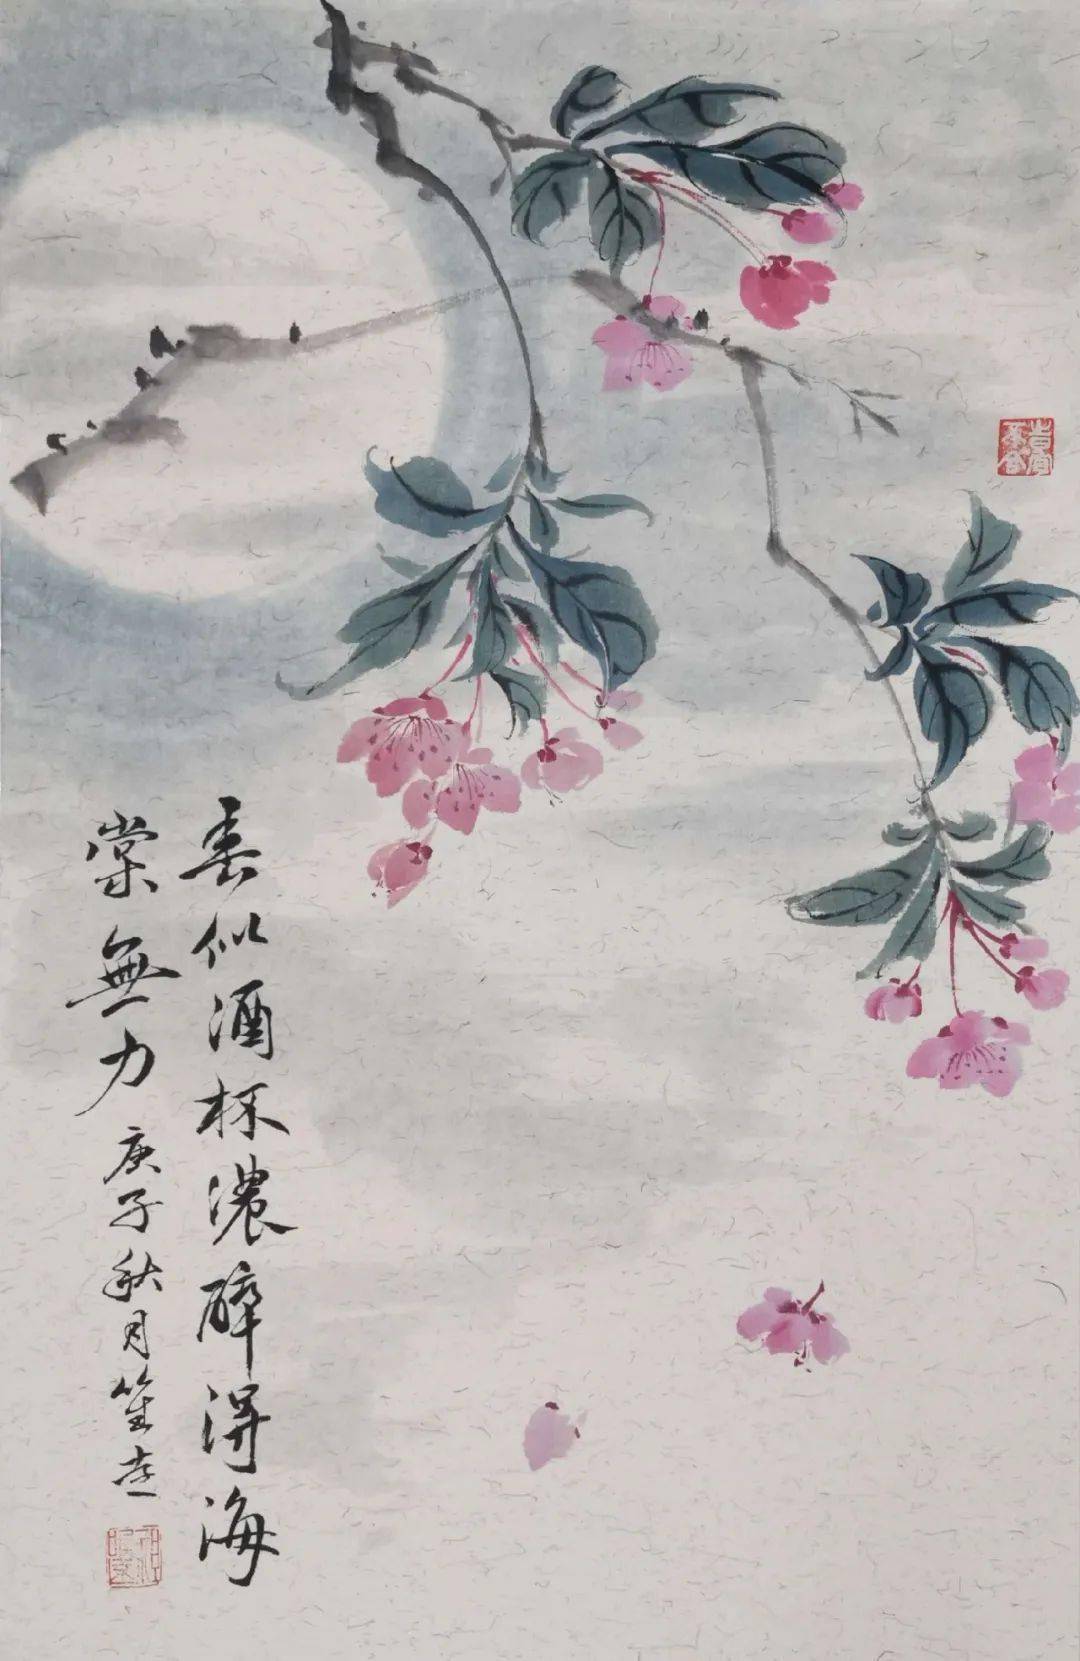 春似酒杯濃醉得海
棠無力 庚子秋月笙